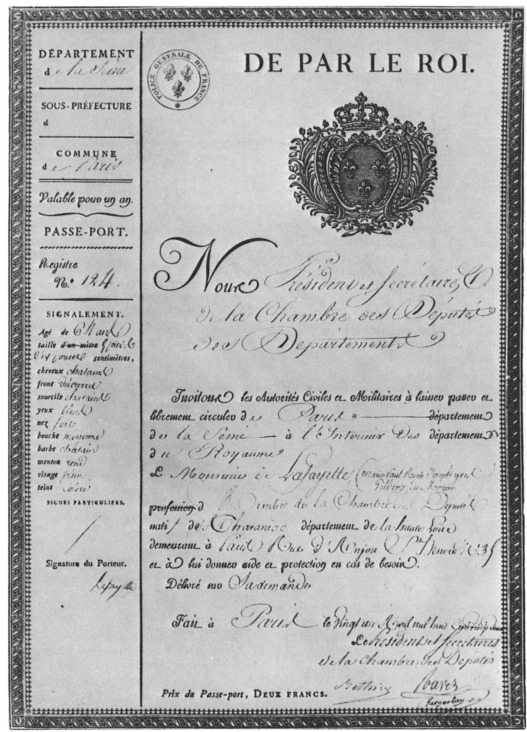 DÉPARTEMENT
de la Seine
SOUS-PRÉFECTURE
d
COMMUNE
de Paris
Valable pour un an.
PASSE-PORT.
Registre
N.º 124.
SIGNALEMENT.
Agé de 64 ans
taille d'un mètre
centimètres,
cheveux chatains
front
sourcils chatains
yeux bleus
nez fort
bouche moyenne
barbe chatain
menton rond
visage plein
teint coloré
SIGNES PARTICULIERS.
Signature du Porteur.
Lafayette
POLICE GÉNÉRALE DE FRANCE
DE PAR LE ROI.
Nous Président et Secrétaires
de la Chambre des Députés
des Départements
Invitons les Autorités Civiles et Militaires à laisser passer et
librement circuler de Paris département
de la Seine à l'Interieur des département
du Royaume
Monsieur de Lafayette
profession d Membre de la Chambre des Députés
natif de Chavaniac département de la haute Loire
demeurant à Paris Rue d'Anjou St. Honoré N.º 35
et à lui donner aide et protection en cas de besoin.
Délivré sur Sa demande
Fait à Paris le vingt un Avril mil huit cent
Le Président et Secretaires
de la Chambre des Députés
Prix du Passe-port, DEUX FRANCS.